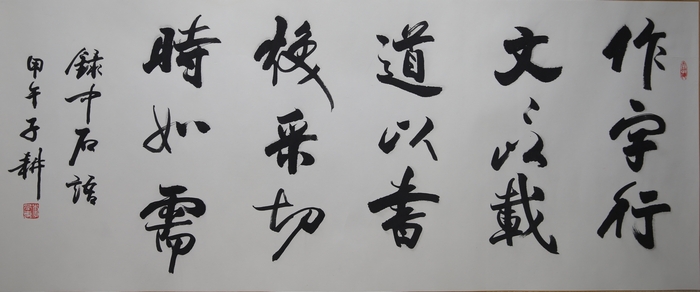 作字行
文〻以載
道以書
煥采切
時如需
錄中石語
甲午子耕